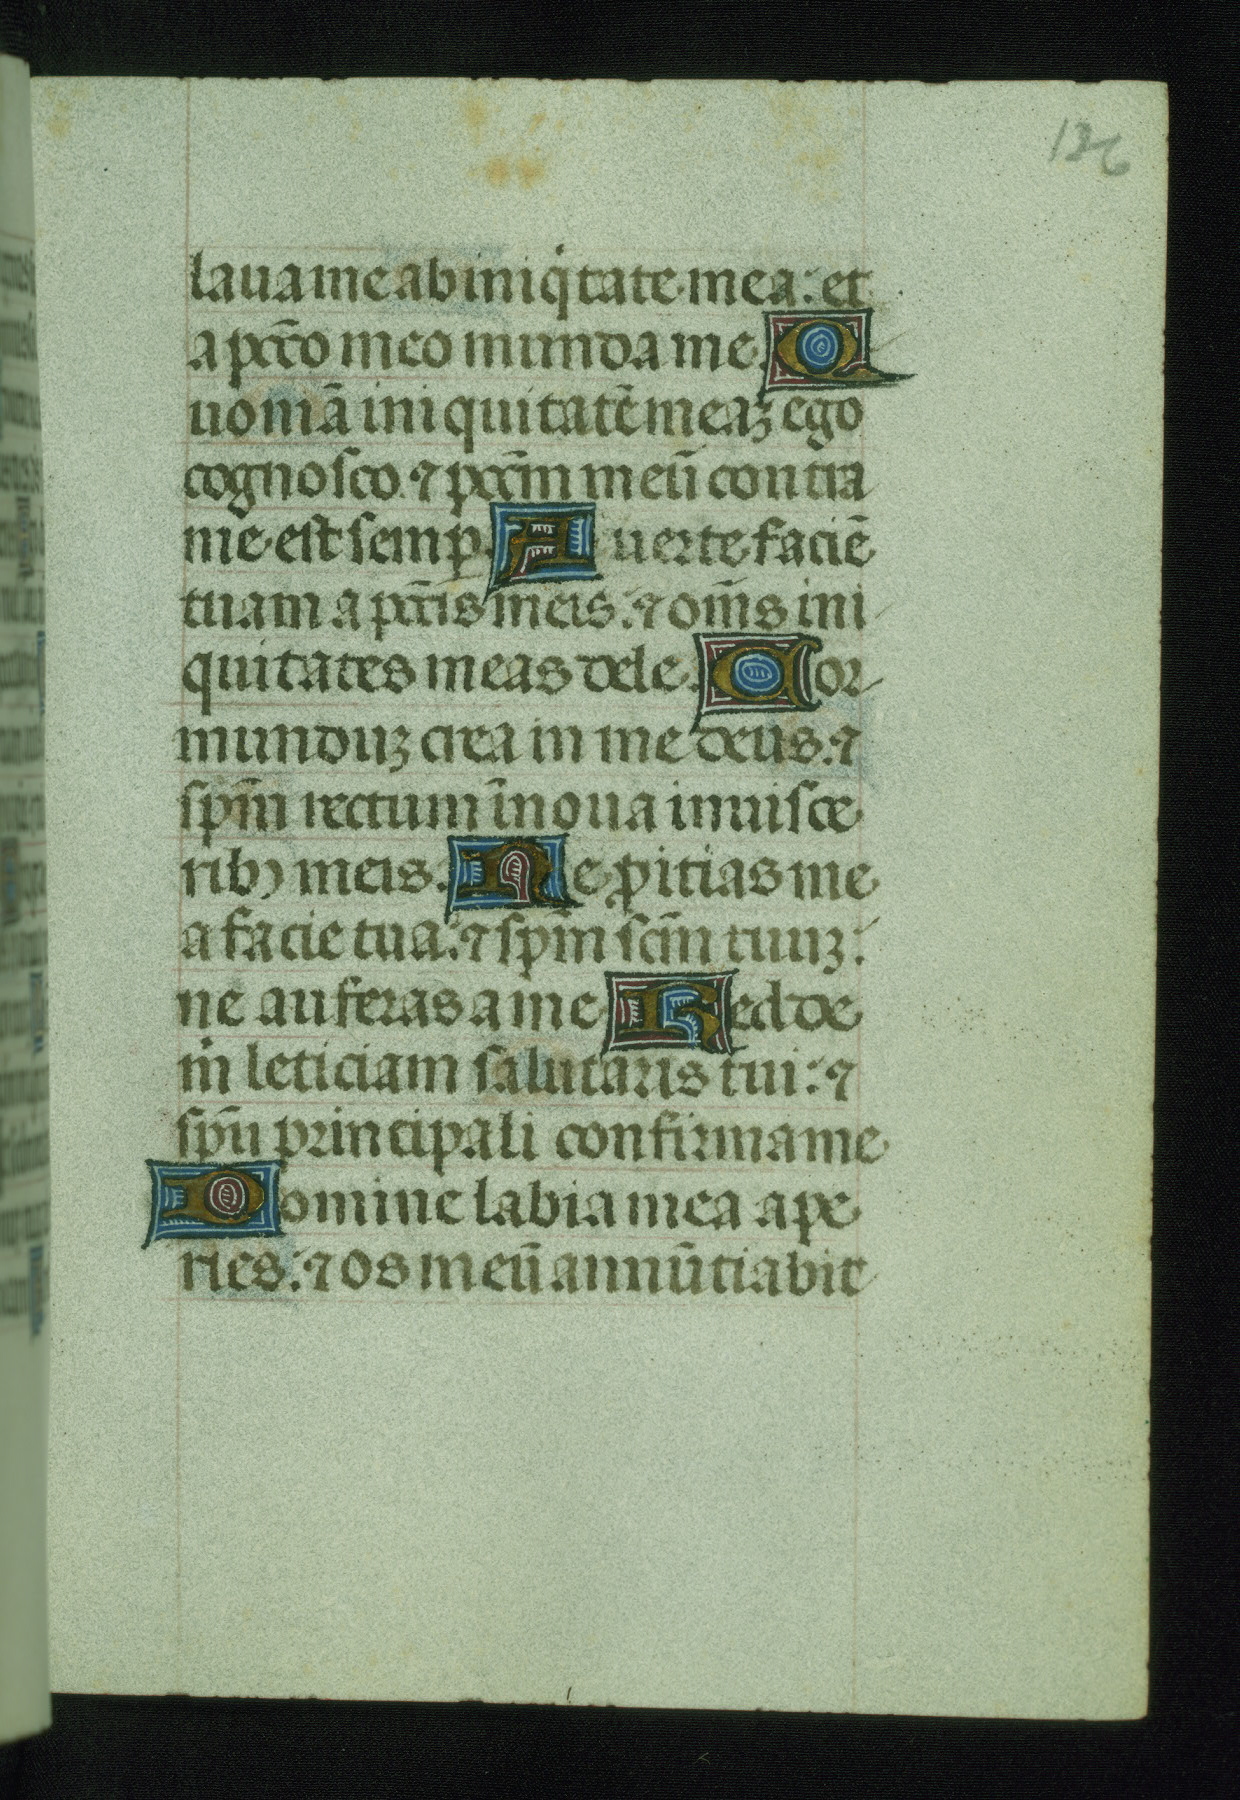 136
laua me ab iniq̇tate mea: et
a pctō meo munda me. Q
uoniā iniquitatē meaꝫ ego
cognosco. ⁊ pccm̄ meū contra
me est semꝑ. A uerte faciē
tuam a pctīs meis: ⁊ om̄s ini
quitates meas dele. Cor
munduꝫ crea in me deus: ⁊
spm̄ rectum īnoua inuisce
ribꝰ meis. Ne ꝓitias me
a facie tua: ⁊ spm̄ scm̄ tuuꝫ:
ne auferas a me Redde
m̄ leticiam salutaris tui: ⁊
spū principali confirma me
Domine labia mea ape
ries: ⁊ os meū annūtiabit